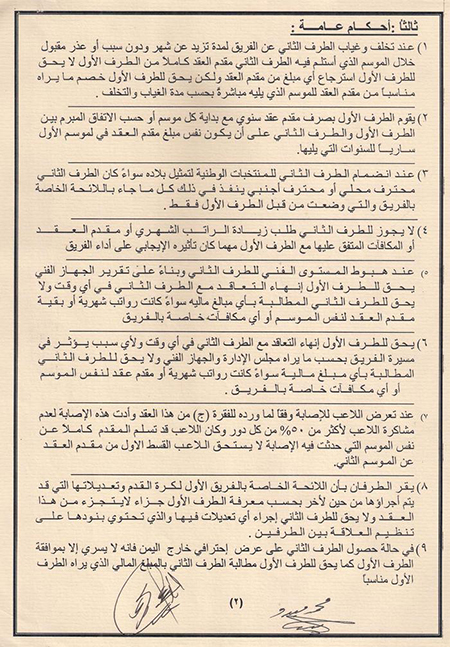 ثالثاً : أحكام عامة :
١) عند تخلف وغياب الطرف الثاني عن الفريق لمدة تزيد عن شهر ودون سبب أو عذر مقبول
خلال الموسم الذي أستلم فيه الطرف الثاني مقدم العقد كاملاً من الطرف الأول لا يحق
للطرف الأول استرجاع أي مبلغ من مقدم العقد ولكن يحق للطرف الأول خصم ما يراه
مناسباً من مقدم العقد للموسم الذي يليه مباشرةً بحسب مدة الغياب والتخلف .
٢) يقوم الطرف الأول بصرف مقدم عقد سنوي مع بداية كل موسم أو حسب الاتفاق المبرم بين
الطرف الأول والطرف الثاني على أن يكون نفس مبلغ مقدم العقد في لموسم الأول
سارياً للسنوات التي يليها.
٣) عند انضمام الطرف الثاني للمنتخبات الوطنية لتمثيل بلاده سواءً كان الطرف الثاني
محترف محلي أو محترف أجنبي ينفذ في ذلك كل ما جاء باللائحة الخاصة
بالفريق والتي وضعت من قبل الطرف الأول فقط .
٤) لا يجوز للطرف الثاني طلب زيادة الراتب الشهري أو مقدم العقد
أو المكافآت المتفق عليها مع الطرف الأول مهما كان تأثيره الإيجابي على أداء الفريق
٥) عند هبوط المستوى الفني للطرف الثاني وبناءً على تقرير الجهاز الفني
يحق للطرف الأول إنهاء التعاقد مع الطرف الثاني في أي وقت ولا
يحق للطرف الثاني المطالبة بأي مبالغ ماليه سواءً كانت رواتب شهرية أو بقية
مقدم العقد لنفس الموسم أو أي مكافآت خاصة بالفريق
٦) يحق للطرف الأول إنهاء التعاقد مع الطرف الثاني في أي وقت ولأي سبب يؤثر في
مسيرة الفريق بحسب ما يراه مجلس الإدارة والجهاز الفني ولا يحق للطرف الثاني
المطالبة بأي مبلغ مالية سواءً كانت رواتب شهرية أو مقدم عقد لنفس الموسم
أو أي مكافآت خاصة بالفريق .
٧) عند تعرض اللاعب للإصابة وفقاً لما ورده للفقرة (ج) من هذا العقد وأدت هذه الإصابة لعدم
مشاركة اللاعب لأكثر من ٥٠% من كل دور وكان اللاعب قد تسلم المقدم كاملاً عن
نفس الموسم التي حدثت فيه الإصابة لا يستحق اللاعب القسط الاول من مقدم العقد
عن الموسم الثاني.
٨) يقر الطرفان بأن اللائحة الخاصة بالفريق الأول لكرة القدم وتعديلاتها التي قد
يتم أجراؤها من حين لأخر بحسب معرفة الطرف الأول جزاء لايتجزء من هذا
العقد ولا يحق للطرف الثاني إجراء أي تعديلات فيها والذي تحتوي بنودها على
تنظيم العلاقة بين الطرفين .
٩) في حالة حصول الطرف الثاني على عرض إحترافي خارج اليمن فانه لا يسري إلا بموافقة
الطرف الأول كما يحق للطرف الأول مطالبة الطرف الثاني بالمبلغ المالي الذي يراه الطرف
الأول مناسباً
(٢)